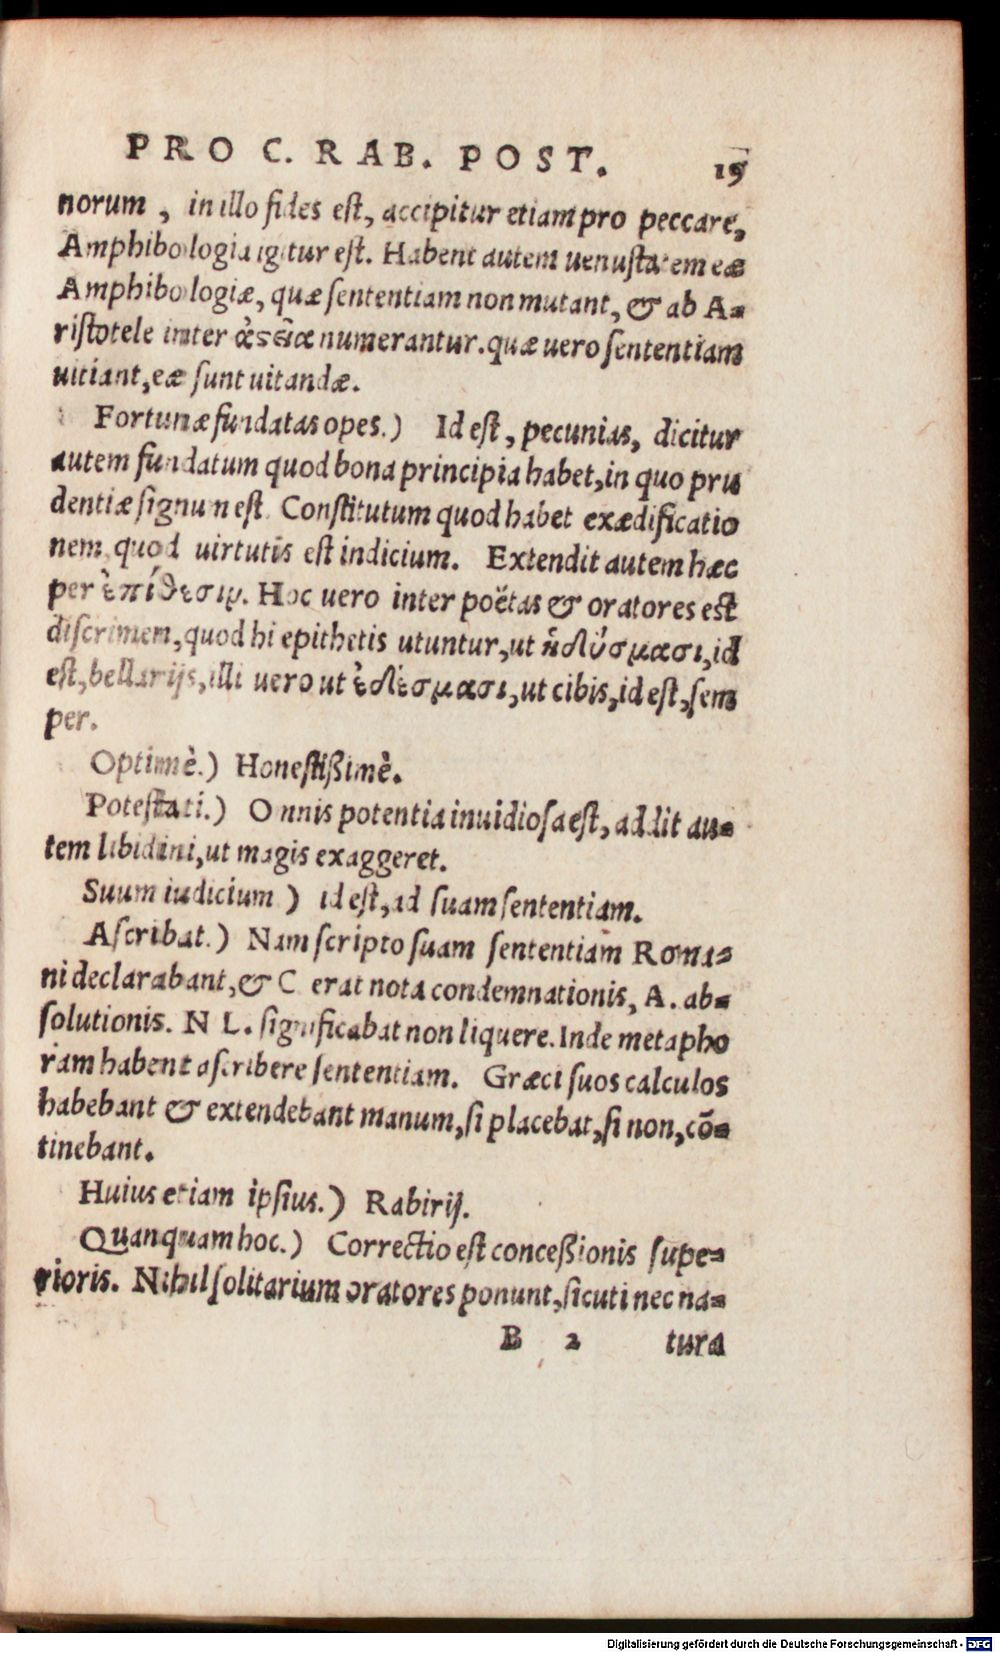 PRO C. RAB. POST. 19
norum, in illo fides est, accipitur etiam pro peccare,
Amphibologia igitur est. Habent autem uenustatem eæ
Amphibologiæ, quæ sententiam non mutant, & ab A-
ristotele inter ἀςεῖα numerantur. quæ uero sententiam
uitiant, eæ sunt uitandæ.
Fortunæ fundatas opes.) Id est, pecunias, dicitur
autem fundatum quod bona principia habet, in quo pru
dentiæ signum est. Constitutum quod habet exædificatio
nem, quod uirtutis est indicium. Extendit autem hæc
per ἐπίθεσιν. Hoc uero inter poëtas & oratores est
discrimen, quod hi epithetis utuntur, ut ἡδύσμασι, id
est, bellarijs, illi uero ut ἐδέσμασι, ut cibis, id est, sem
per.
Optimè.) Honestißimè.
Potestati.) Omnis potentia inuidiosa est, addit au-
tem libidini, ut magis exaggeret.
Suum iudicium ) id est, ad suam sententiam.
Ascribat.) Nam scripto suam sententiam Roma-
ni declarabant, & C erat nota condemnationis, A. ab-
solutionis. N L. significabat non liquere. Inde metapho
ram habent ascribere sententiam. Græci suos calculos
habebant & extendebant manum, si placebat, si non, cō-
tinebant.
Huius etiam ipsius.) Rabirij.
Quanquam hoc.) Correctio est conceßionis supe-
rioris. Nihil solitarium oratores ponunt, sicuti nec na-
B 2 tura
Digitalisierung gefördert durch die Deutsche Forschungsgemeinschaft - DFG